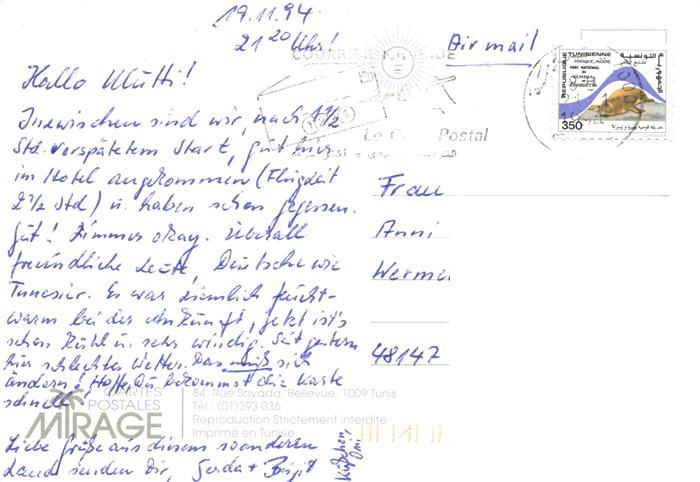 19.11.94
21²⁰ Uhr!
Air mail
Hallo Mutti!
Inzwischen sind wir, nach 1½
Std. verspätetem Start, gut hier
im Hotel angekommen (Flugzeit
2½ Std) u. haben schon gegessen.
Gut! Zimmer okay. Überall
freundliche Leute, Deutsche wie
Tunesier. Es war ziemlich feucht-
warm bei der Ankunft, jetzt ist's
schon kühl u. sehr windig. Seit gestern
hier schlechtes Wetter. Das muß sich
ändern! Hoffe, Du bekommst die Karte
schnell!
Liebe Grüße aus diesem
Land senden Dir, Gerda + Birgit
Küßchen,
Frau
Anni
Werme
48147
REPUBLIQUE TUNISIENNE
PHOQUE MOINE
PARC NATIONAL
ZEMBRA
ZEMBRETTA
350
Postal
CARTES
POSTALES
MIRAGE
84, Rue Sayada, Bellevue, 1009 Tunis
Tél.: (01)393 036
Reproduction Strictement interdite
Imprimé en Tunisie